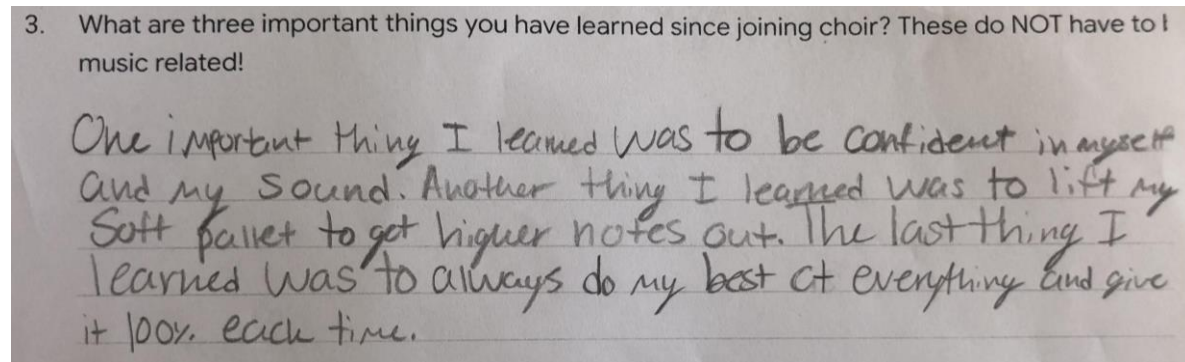 3. What are three important things you have learned since joining choir? These do NOT have to
music related!
One important thing I learned was to be confident in myself
and my sound. Another thing I learned was to lift my
Soft pallet to get higher notes out. The last thing I
learned was to always do my best at everything and give
it 100% each time.